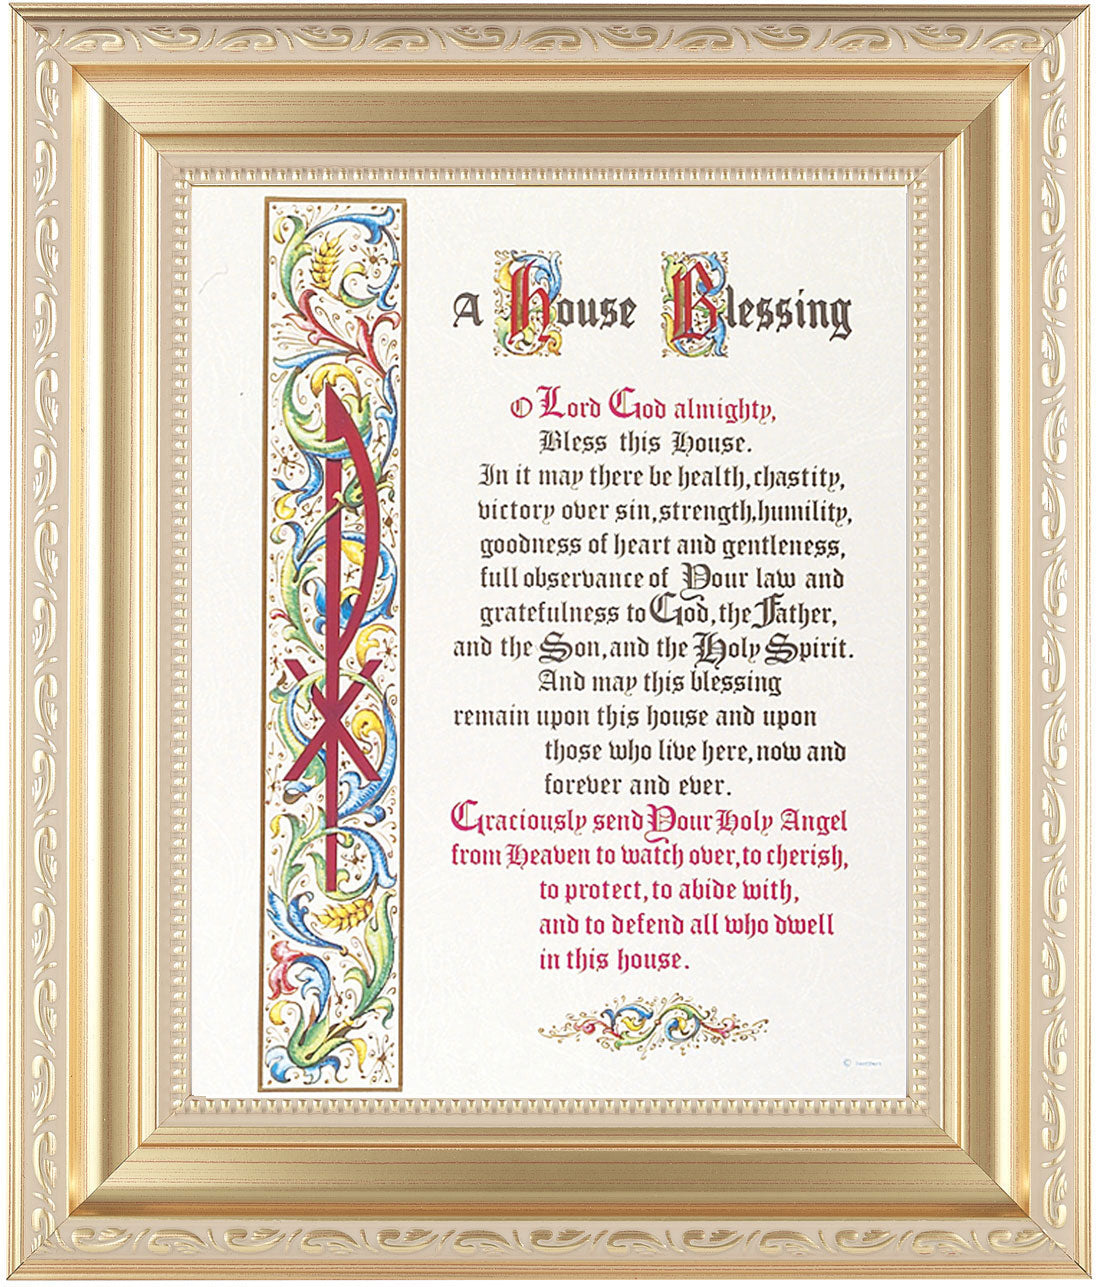 A House Blessing
O Lord God almighty,
Bless this House.
In it may there be health, chastity,
victory over sin, strength, humility,
goodness of heart and gentleness,
full observance of Your law and
gratefulness to God, the Father,
and the Son, and the Holy Spirit.
And may this blessing
remain upon this house and upon
those who live here, now and
forever and ever.
Graciously send Your Holy Angel
from Heaven to watch over, to cherish,
to protect, to abide with,
and to defend all who dwell
in this house.
©